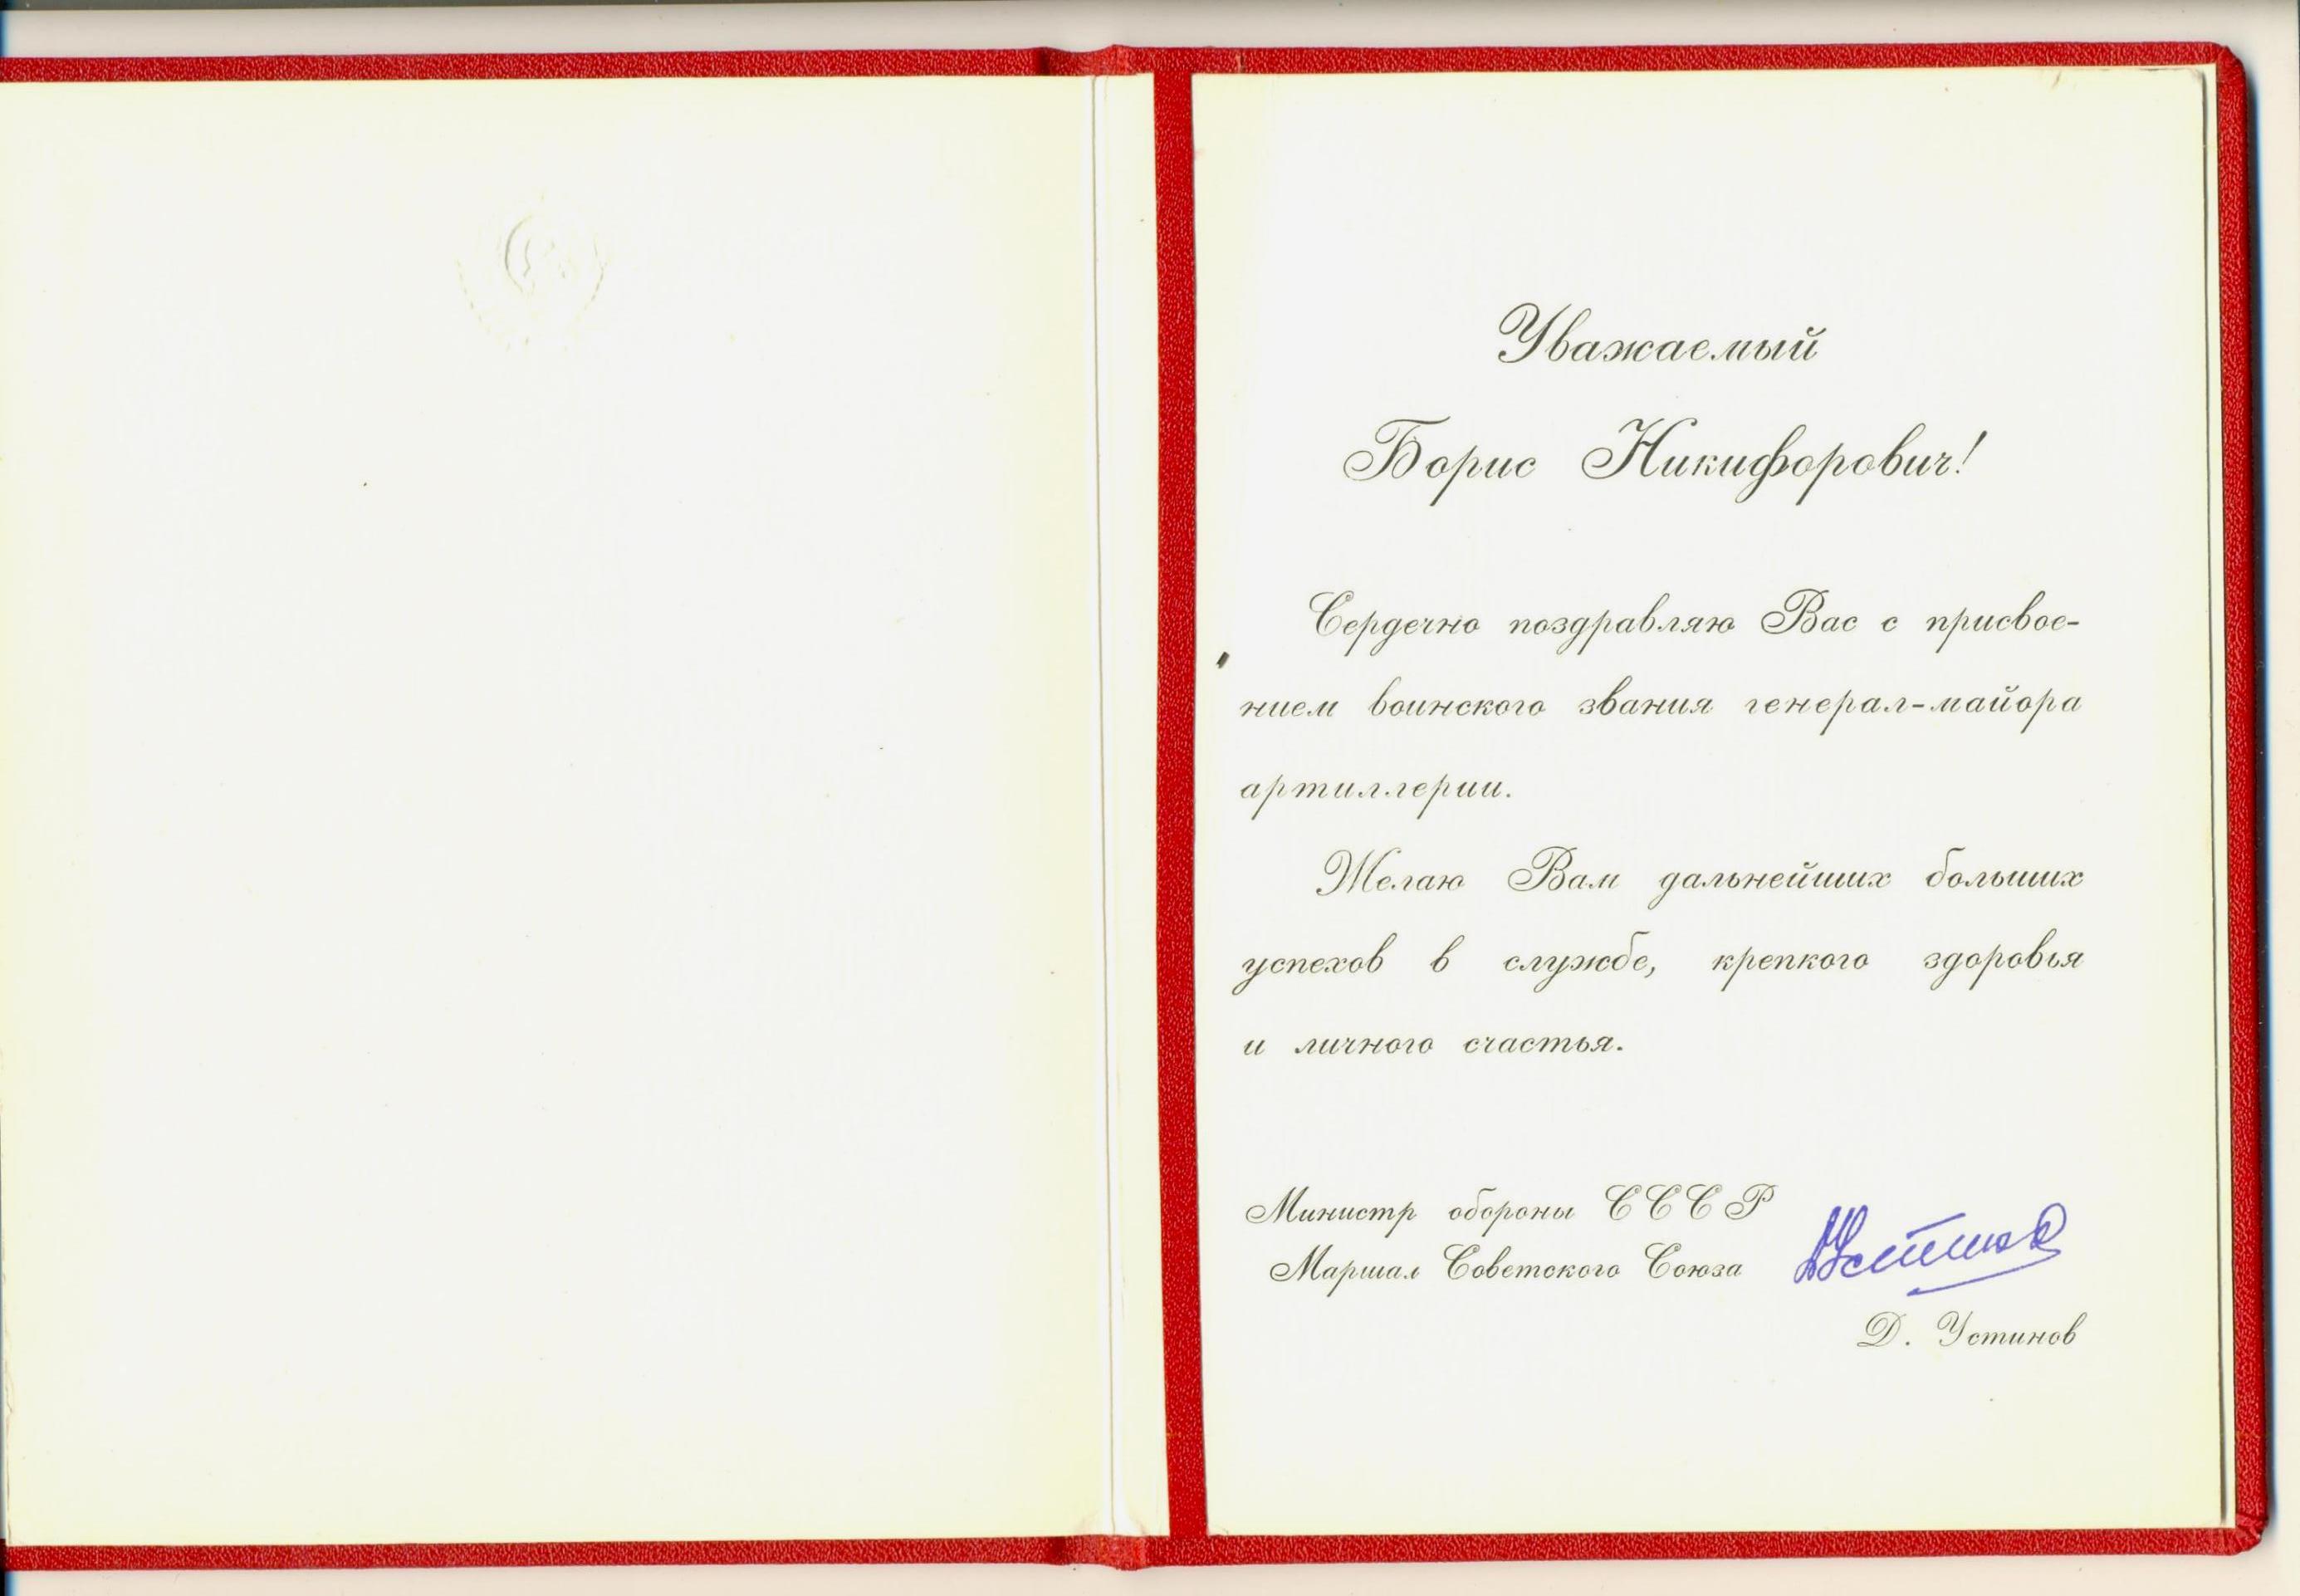 Уважаемый
Борис Никифорович!
Сердечно поздравляю Вас с присвое-
нием воинского звания генерал-майора
артиллерии.
Желаю Вам дальнейших больших
успехов в службе, крепкого здоровья
и личного счастья.
Министр обороны СССР
Маршал Советского Союза
Устинов
Д. Устинов